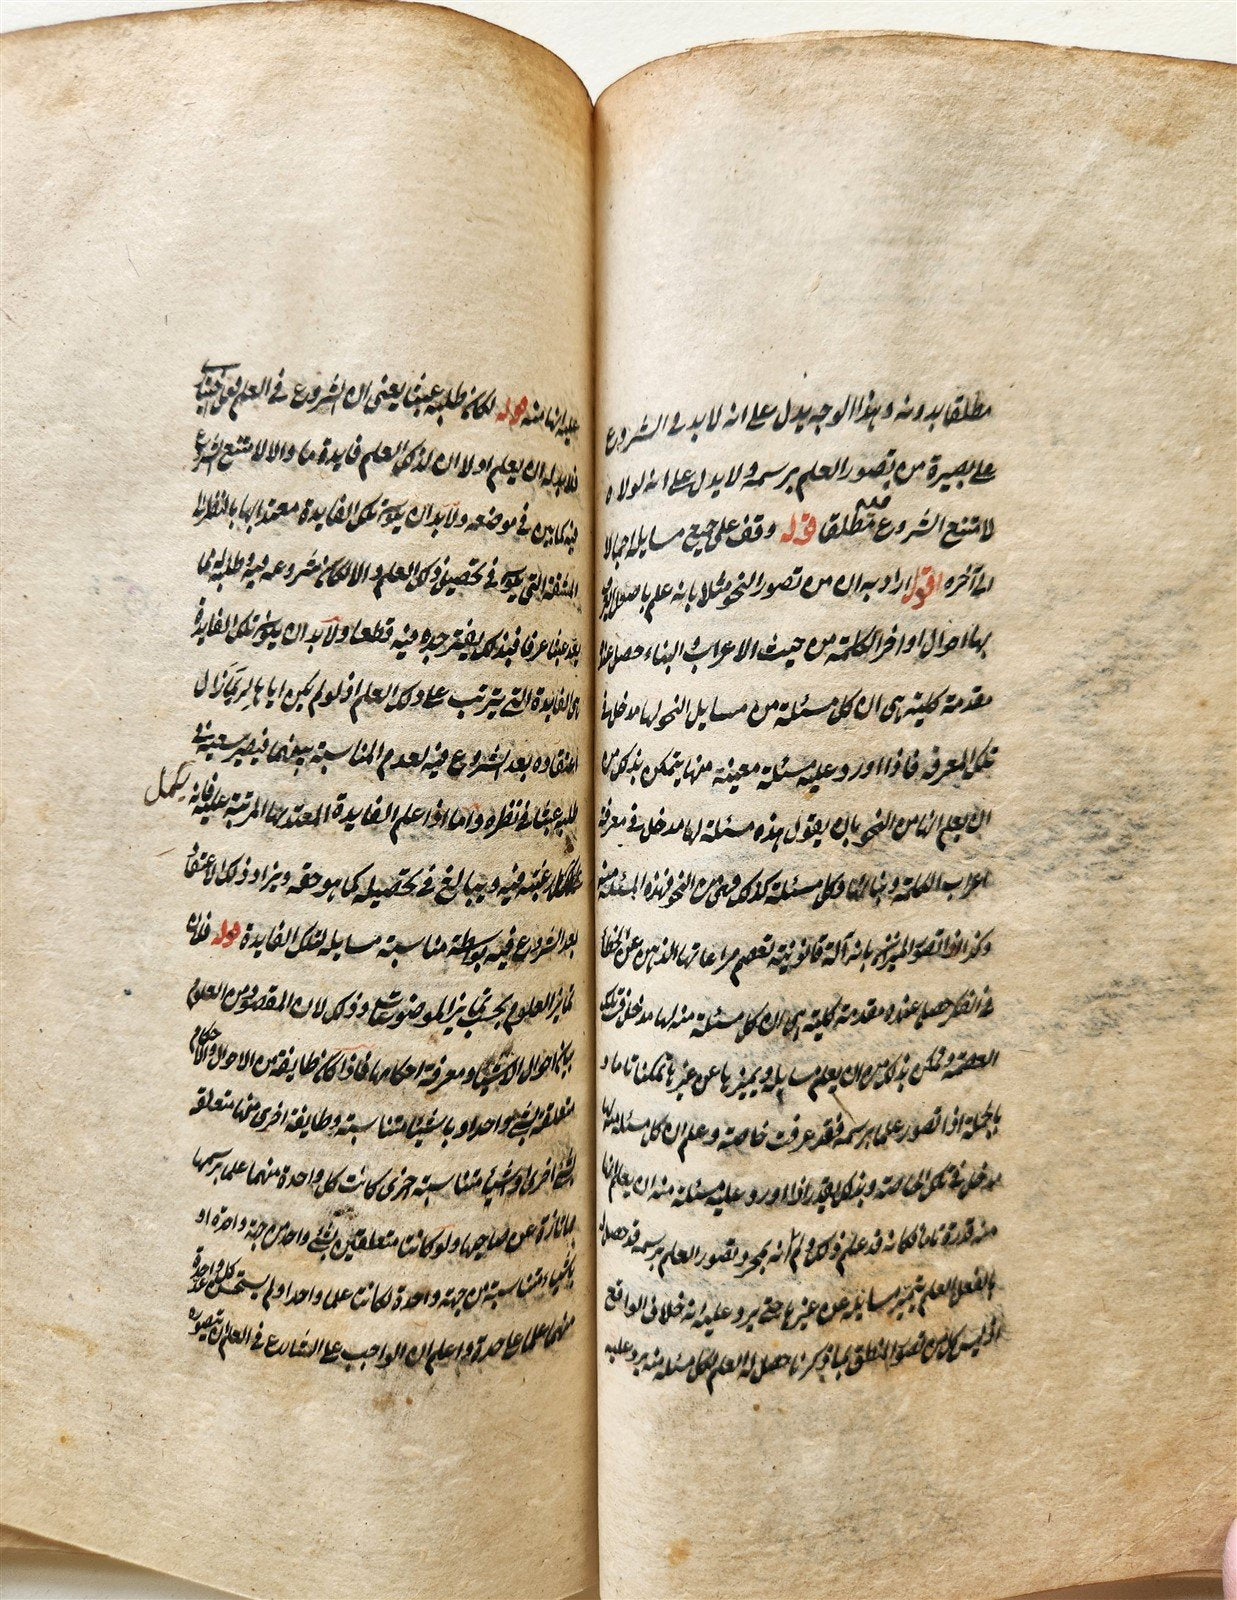 مطلقا بدونه وهذا الوجه يدل على انه لا بد فى الشروع
على بصيرة من تصور العلم برسمه ولا يدل على انه لولاه
لامتنع الشروع فيه مطلقا قوله وقف على جميع مسايله اجمالا
الى آخره اقول اراد به ان من تصور النحو مثلا بانه علم باصول يعرف
بها احوال اواخر الكلمة من حيث الاعراب والبناء حصل عنده
مقدمة كلية هى ان كل مسئلة من مسايل النحو لها مدخل فى
تلك المعرفة فاذا اورد عليه مسئلة معينة منها يتمكن بذلك من
ان يعلم انها من النحو بان يقول هذه مسئلة لها مدخل فى معرفة
اعراب الكلمة وبنائها وكل مسئلة كذلك فهى من النحو فهذه المسئلة منه
وكذا اذا تصور الميزان بانه آلة قانونية تعصم مراعاتها الذهن عن الخطا
فى الفكر حصل عنده مقدمة كلية هى ان كل مسئلة منه لها مدخل فى تلك
العصمة وتمكن بذلك من ان يعلم مسايله ويميزها عن غيرها تمكنا تاما و
بالجملة اذا تصور علما برسمه فقد عرف خاصته وعلم ان كل مسئلة منه لها
مدخل فى تلك الخاصة وبذلك يقدر اذا اورد عليه مسئلة منه ان يعلم انها
منه قدرة تامة فكانه قد علم ذلك ولم انه بمجرد تصور العلم برسمه قد حصل له
بالفعل العلم تميز مسايله عن غيرها حتى يرد عليه انه خلاف الواقع
اذ ليس كل من تصور المنطق بما ذكرنا حصل له العلم بكل مسئلة منه يرد عليه
عليه انها منه قوله لكان طلبه عبثا يعنى ان الشروع فى العلم فعل اختيارى
فلا بد له ان يعلم اولا ان لذلك العلم فايدة ما والا لامتنع الشروع
فيه كما بين فى موضعه ولا بد ان يكون تلك الفايدة معتدا بها بالنظر الى
المشقة التى يكون فى تحصيل ذلك العلم والا لكان شروعه فيه وطلبه مما
يعد عبثا عرفا فبذلك يفتر جده فيه قطعا ولا بد ان يكون تلك الفايدة
هى الفايدة التى يترتب على ذلك العلم اذ لو لم يكن اياها لربما زال
اعتقاده بعد الشروع فيه لعدم المناسبة بينهما فيصير سعيه فى
طلبه عبثا فى نظره واما اذا علم الفايدة المعتد بها المرتبة عليه فانه يكمل
رغبته فيه ويبالغ فى تحصيله كما هو حقه ويزداد ذلك الاعتقاد
بعد الشروع فيه بواسطة مناسبة مسايله لتلك الفايدة قوله فلان
تمايز العلوم بحسب تمايز الموضوعات وذلك لان المقصود من العلوم
بيان احوال الاشياء ومعرفة احكامها فاذا كان طايفة من الاحوال والاحكام
متعلقة بشئ واحد او باشياء متناسبة وطايفة اخرى منها متعلقة
بشئ آخر او اشياء متناسبة اخرى كانت كل واحدة منهما علما برسمها
ممتازة عن صاحبها ولو كانت متعلقتين بشئ واحد من جهة واحدة او
باشياء متناسبة من جهة واحدة لكانت علما واحدا ولم يستحسن عد كل واحدة
منهما علما على حدة واعلم ان الواجب على الشارع فى العلم ان يتصوره